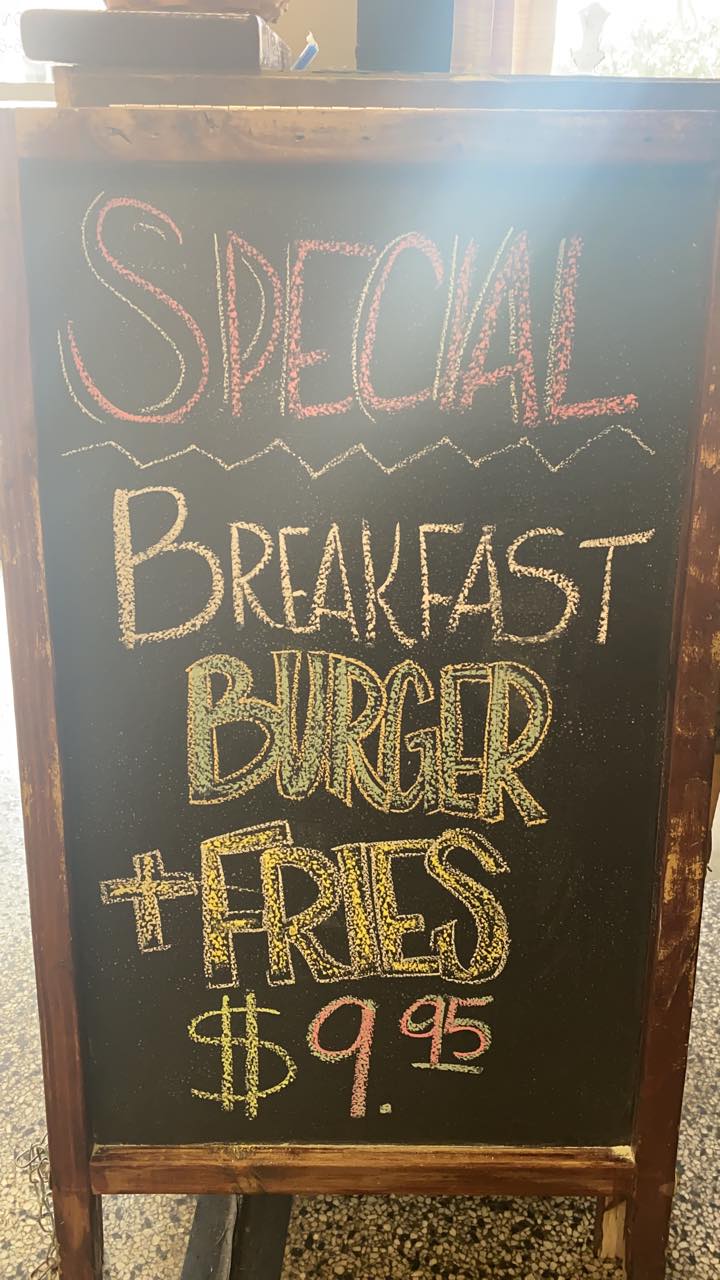 SPECIAL
BREAKFAST
BURGER
+FRIES
$9.95